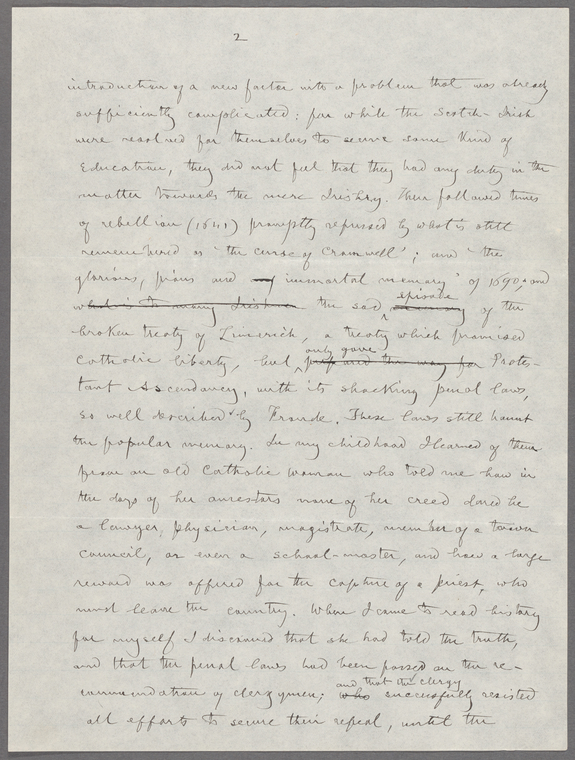 2
introduction of a new factor into a problem that was already
sufficiently complicated: for while the Scotch-Irish
were resolved for themselves to secure some kind of
Education, they did not feel that they had any duty in the
matter towards the mere Irishry. Then followed times
of rebellion (1641) promptly repressed by what is still
remembered as 'the curse of Cromwell'; and 'the
glorious, pious and immortal memory' of 1690, and
what is to many Irishmen the sad episode of the
broken treaty of Limerick, a treaty which promised
Catholic liberty, but, only gave and the way for Protes-
tant Ascendancy, with its shocking penal laws,
so well described by Froude. These laws still haunt
the popular memory. In my childhood I learned of them
from an old Catholic woman who told me how in
the days of her ancestors none of her creed dared be
a lawyer, physician, magistrate, member of a town
council, or even a school-master, and how a large
reward was offered for the capture of a priest, who
must leave the country. When I came to read history
for myself I discovered that she had told the truth,
and that the penal laws had been passed on the re-
commendation of clergymen; who and that the clergy successfully resisted
all efforts to secure their repeal, until the